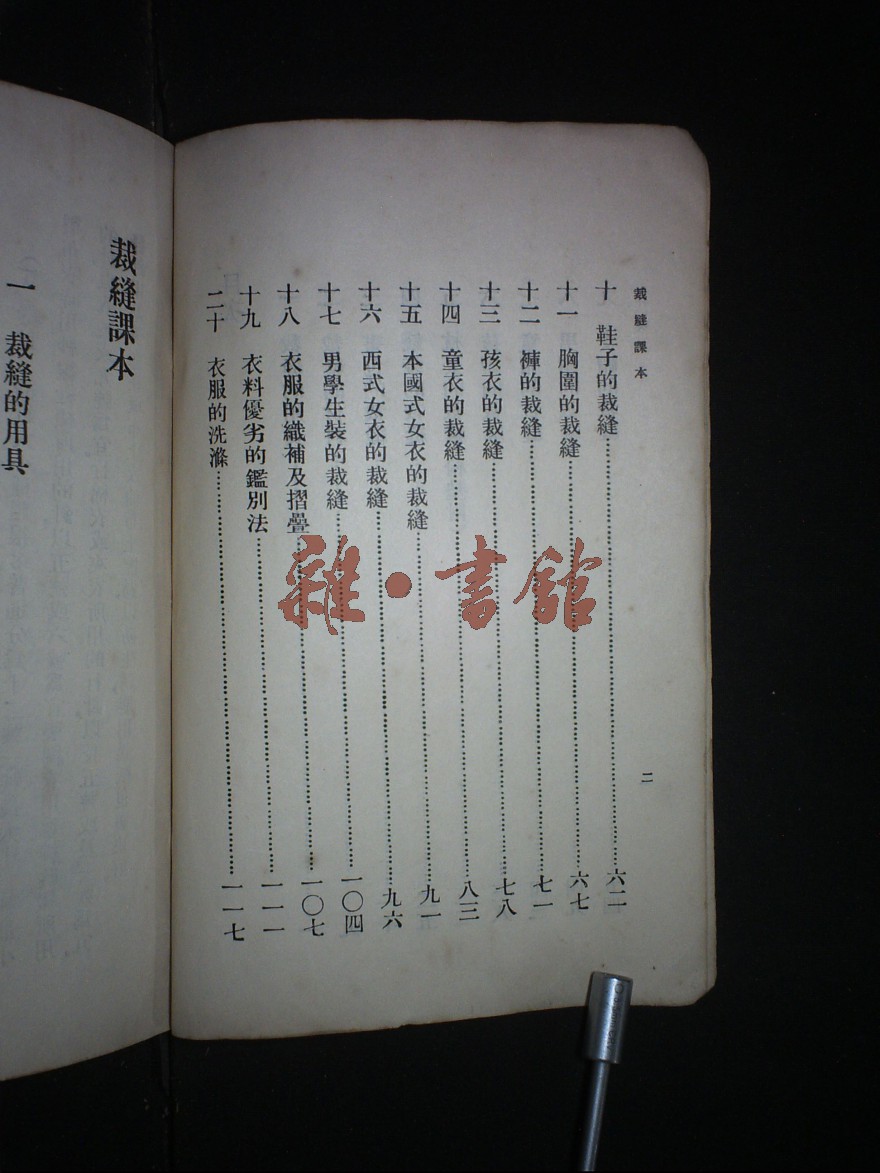 裁縫課本
二
十　鞋子的裁縫……六二
十一　胸圍的裁縫……六七
十二　褲的裁縫……七一
十三　孩衣的裁縫……七八
十四　童衣的裁縫……八三
十五　本國式女衣的裁縫……九一
十六　西式女衣的裁縫……九六
十七　男學生裝的裁縫……一〇四
十八　衣服的織補及摺疊……一〇七
十九　衣料優劣的鑑別法……一一一
二十　衣服的洗滌……一一七
裁縫課本
一　裁縫的用具
雜·書館